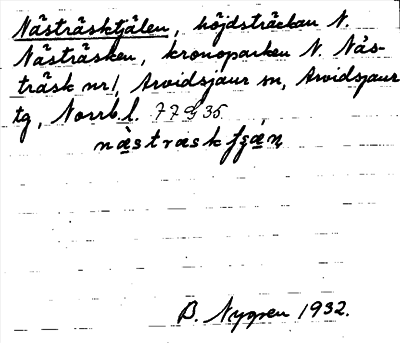 Nästräsktjålen, höjdsträckan N.
Nästräsken, kronoparken N. Näs-
träsk nr 1, Arvidsjaur sn, Arvidsjaur
tg, Norrb. l. 779 35
B. Nygren 1932.